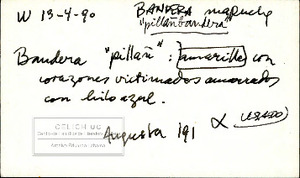 W 13-4-90
BANDERA mapuche
"pillañbandera"
Bandera "pillañ": amarilla con
corazones victimados amarrados
con hilo azul.
CELICH UC
Augusta 191 α (USADO)